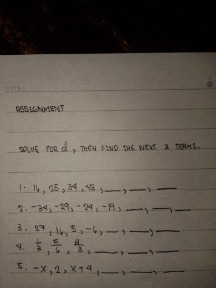 ASSIGNMENT
SOLVE FOR d, THEN FIND THE NEXT 3 TERMS.
1. 16, 25, 34, 43, __, __, __
2. -34, -29, -24, -19, __, __, __
3. 27, 16, 5, -6, __, __, __
4. 1/3, 5/6, 4/3, __, __, __
5. -x, 2, x+4, __, __, __